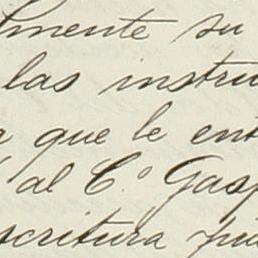 lmente su
las instru
a que le ent
al C.º Gasp
scritura pú